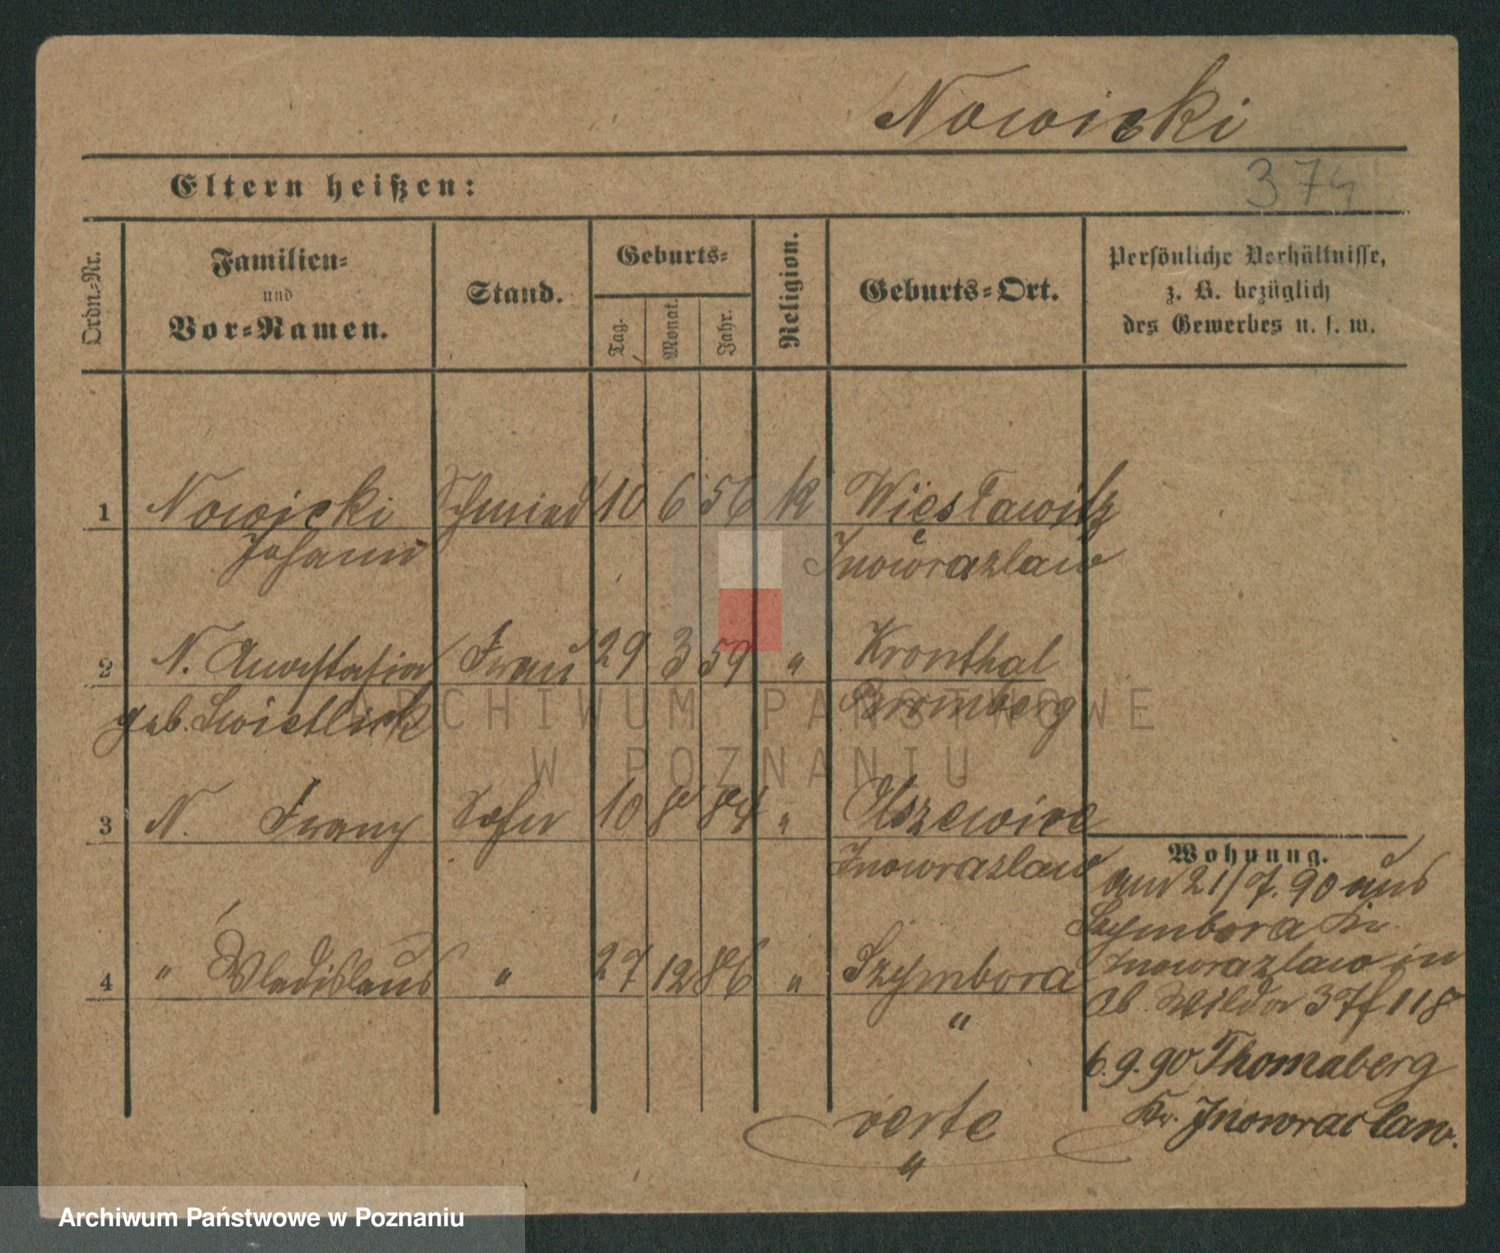 Nowicki
374
Eltern heißen:
Ordn.-Nr.
Familien-
und
Vor-Namen.
Stand.
Geburts-
Tag.
Monat.
Jahr.
Religion.
Geburts-Ort.
Persönliche Verhältnisse,
z. B. bezüglich
des Gewerbes u. s. w.
1 Nowicki Schmied 10 6 56 k Wieslawitz
Johann Inowrazlaw
2 N. Anastasia Frau 29 3 59 " Kronthal
geb. Swietlick Bromberg
3 N. Franz Sohn 10 8 84 " Olszewice
Inowrazlaw
4 " Wladislaus " 27 12 86 " Szymbora
"
verte
"
Wohnung.
am 21/7.90 aus
Szymbora Kr.
Inowrazlaw in
Ob. Wilda 37 f 118
6.9.90 Thomaberg
Kr. Inowraclaw.
ARCHIWUM PAŃSTWOWE
W POZNANIU
Archiwum Państwowe w Poznaniu